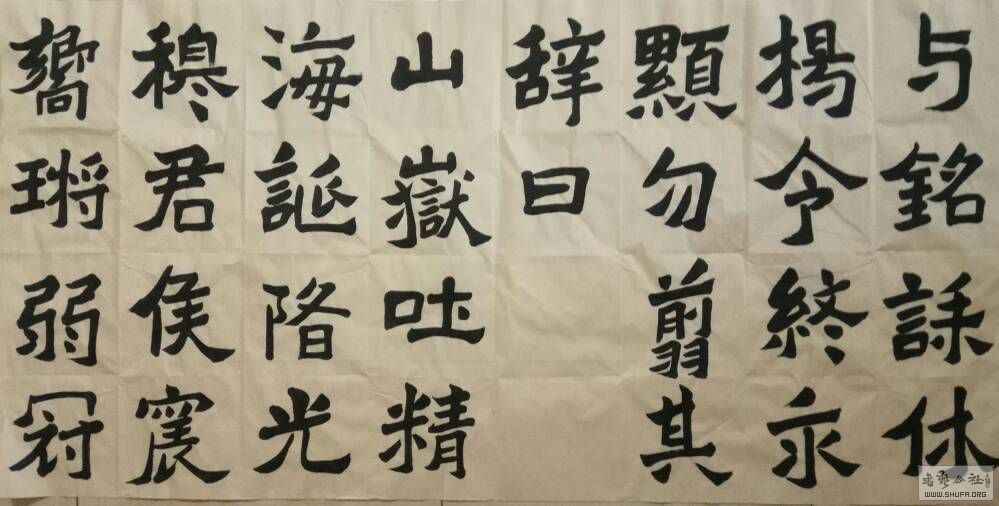 与銘誄休
揚令終永
顯勿翦其
辞曰
山嶽吐精
海誕陼光
穆々君侯震
響弱冠
書藝公社
WWW.SHUFA.ORG